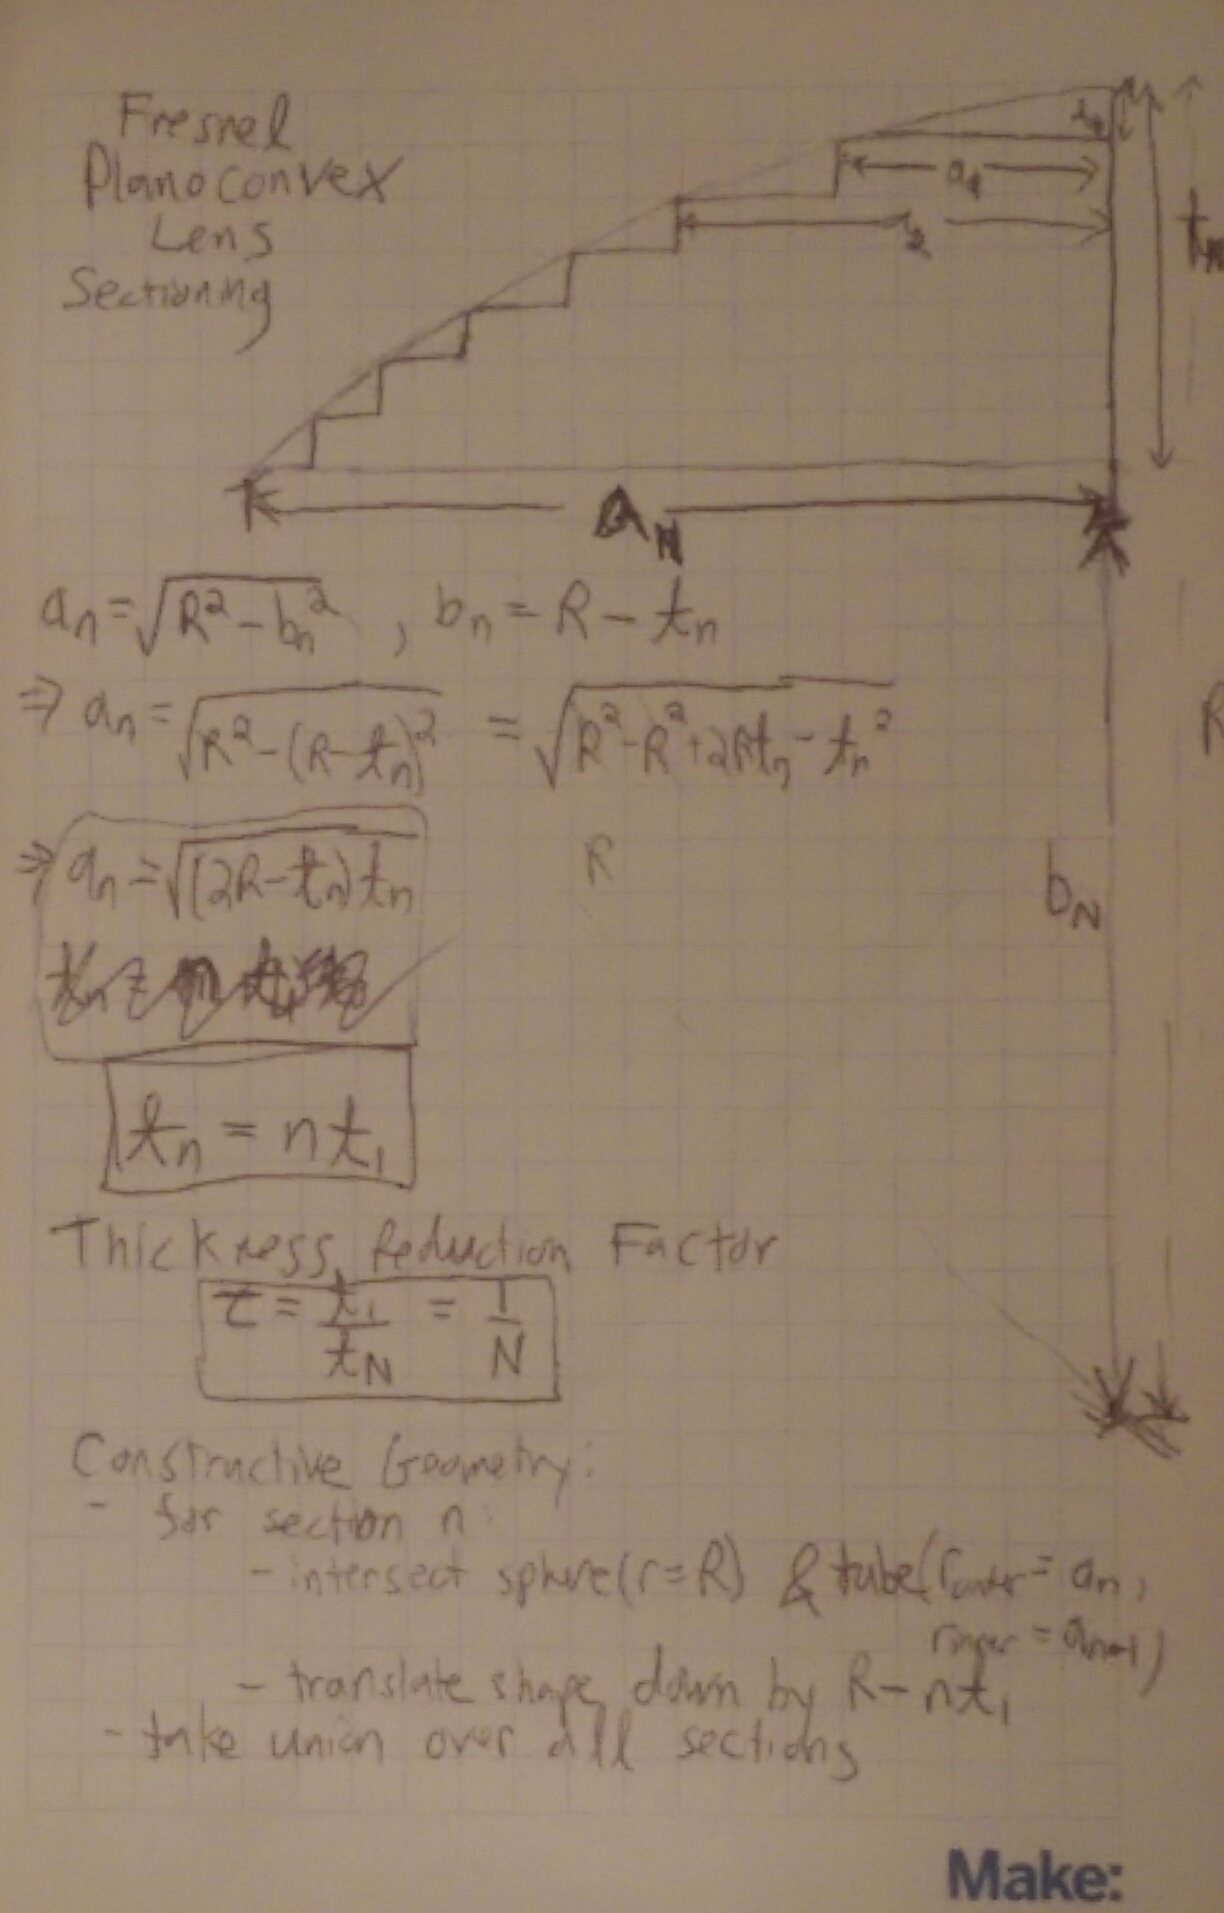 Fresnel
Planoconvex
Lens
Sectioning
a₁
a₂
t_N
a_N
aₙ = √(R² - bₙ²) , bₙ = R - tₙ
⇒ aₙ = √(R² - (R - tₙ)²) = √(R² - R² + 2Rtₙ - tₙ²)
R
⇒ aₙ = √((2R - tₙ) tₙ)
R
b_N
tₙ = n t₁
Thickness Reduction Factor
τ = t₁/t_N = 1/N
Constructive Geometry:
- for section n:
- intersect sphere(r=R) & tube(r_outer = aₙ,
r_inner = aₙ₋₁)
- translate shape down by R - nt₁
- take union over all sections
Make: